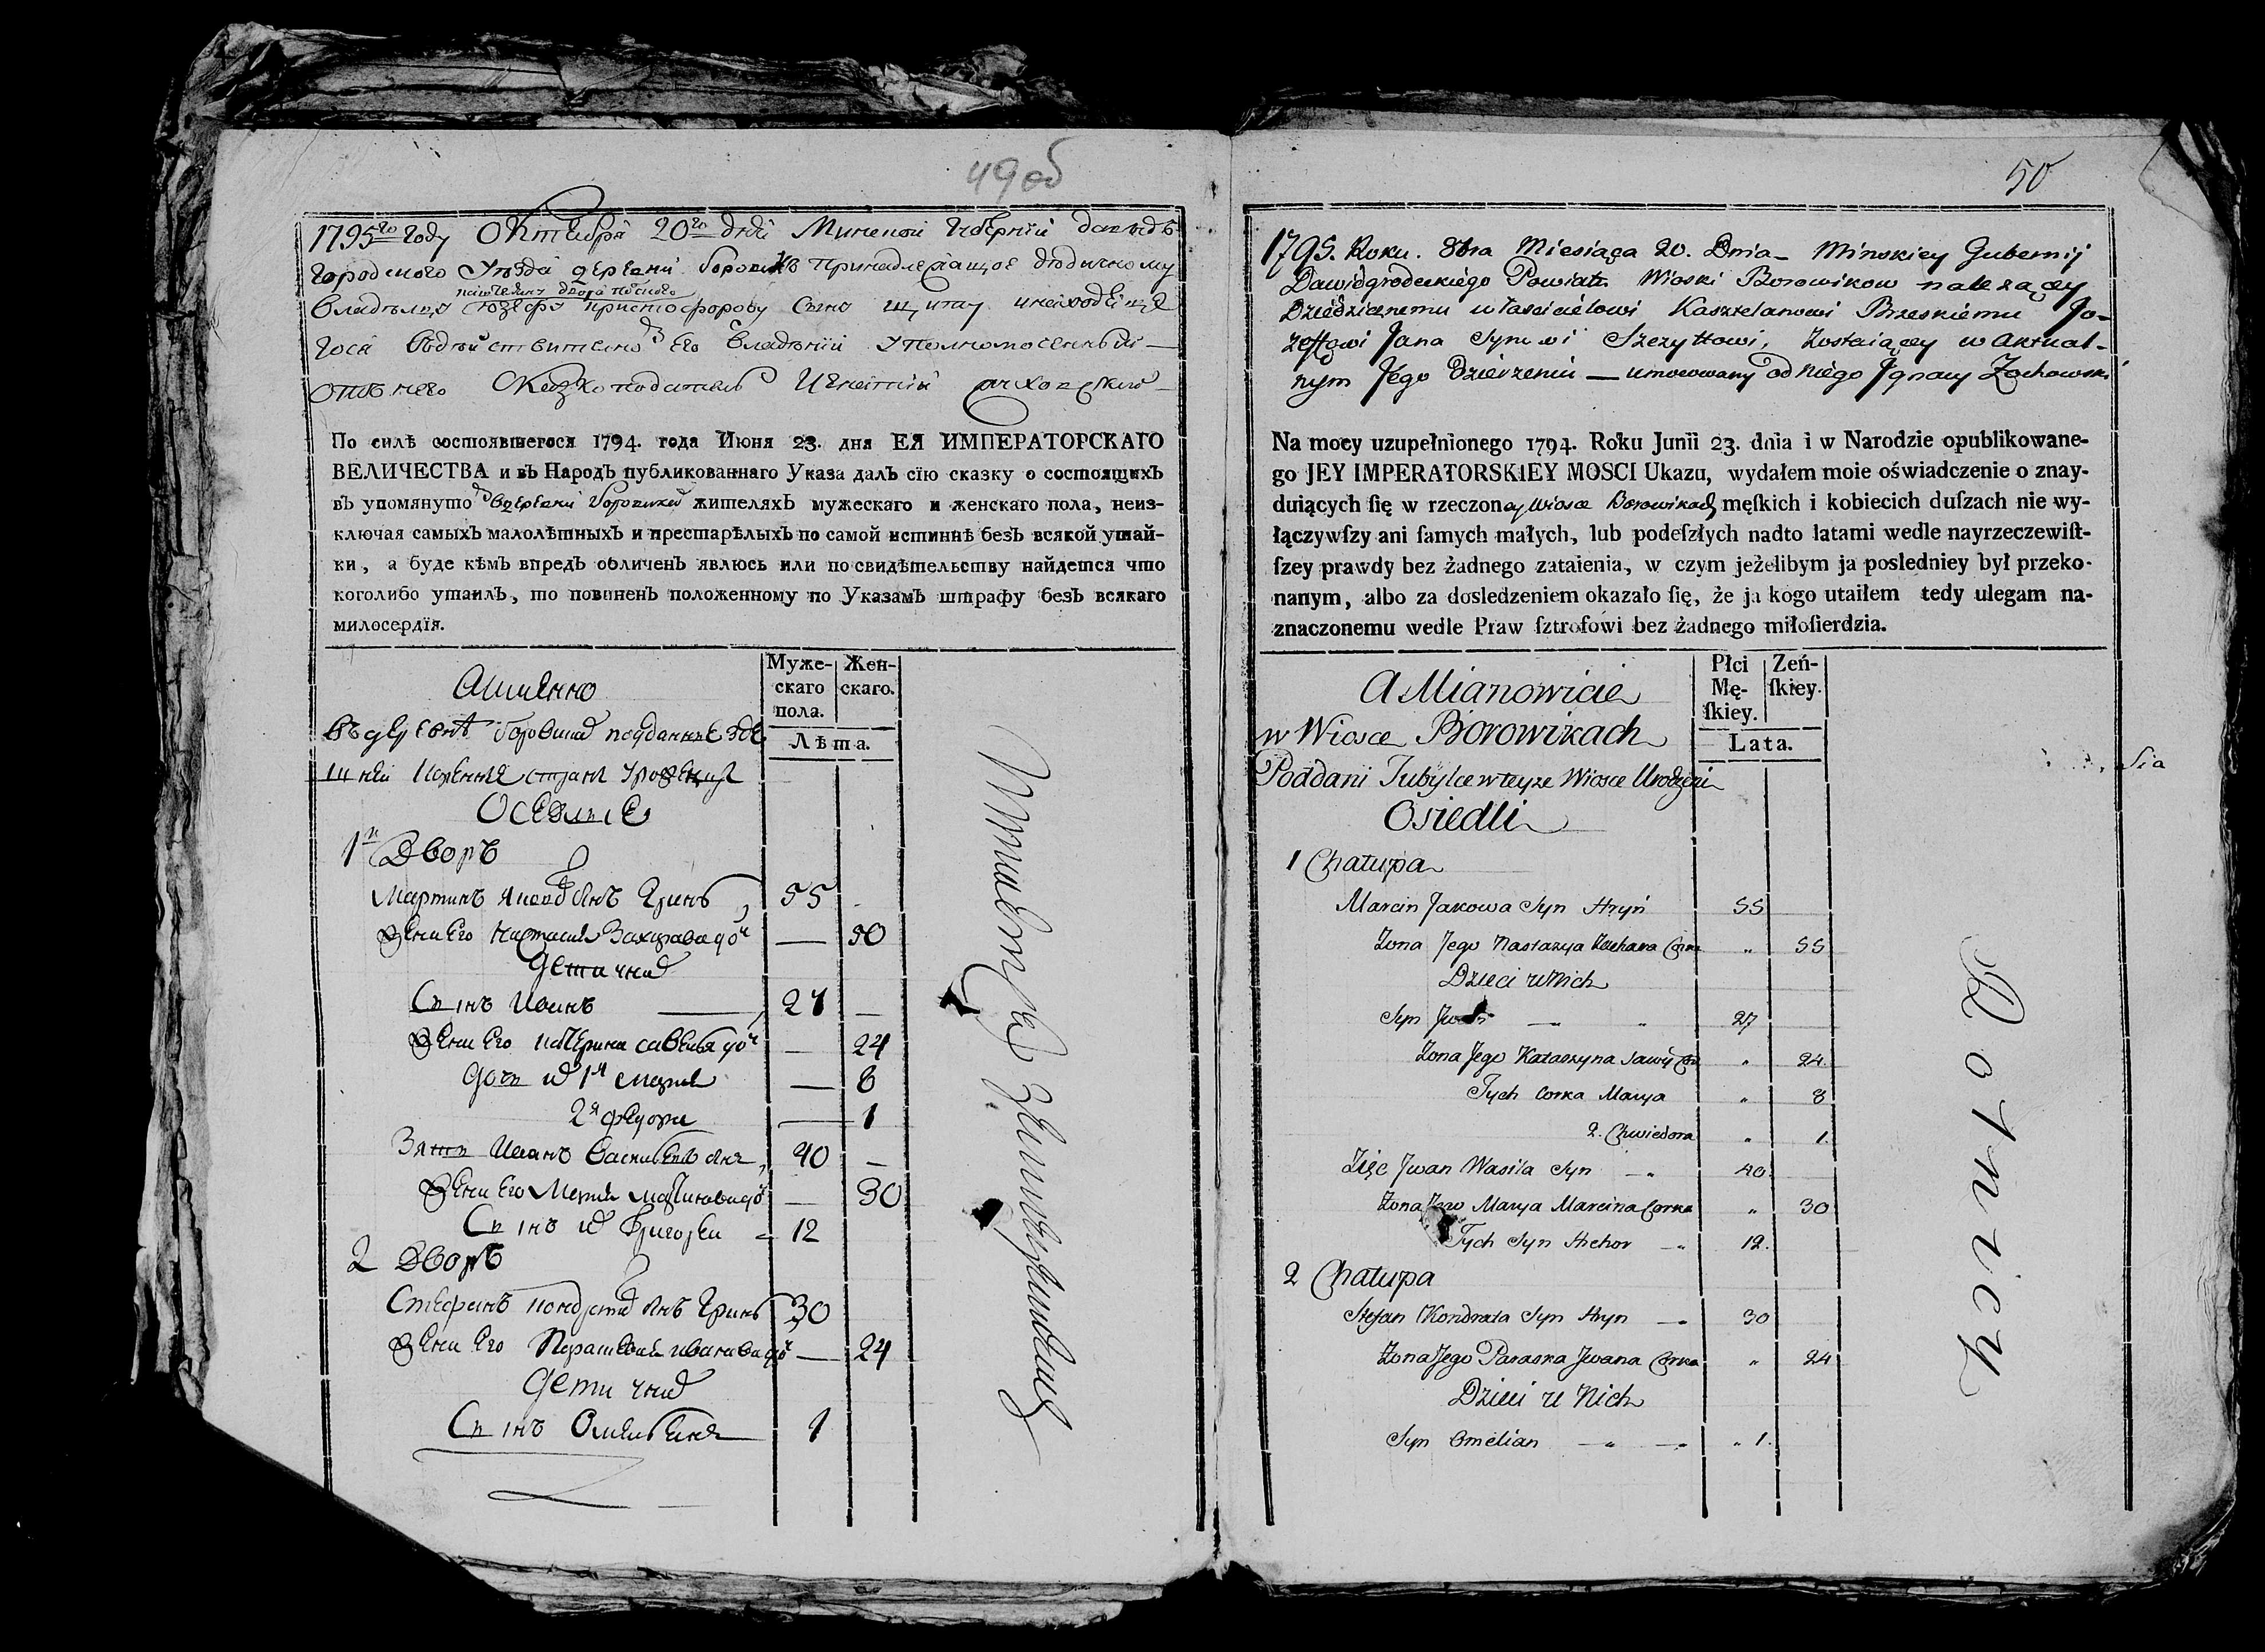 49 об
1795го году Октября 20го дня Минской Губернiи давидъ
городского уезда деревни Боровиковъ принадлежащое дедичному
каштеляну двора полского
владельца Юзефу христофорову сыну щиту инаходяще
гося вдействителномъ его владенiи уполномоченный
отъ него сказкоподатель Игнатiй жуховский
По силѣ состоявшегося 1794. года Июня 23. дня ЕЯ ИМПЕРАТОРСКАГО
ВЕЛИЧЕСТВА и въ НародЪ публикованнаго Указа далЪ сїю сказку о состоящихЪ
въ упомянутой вдеревни Боровиках жителяхЬ мужескаго и женскаго пола, неиз-
ключая самыхЪ малолѣтныхЪ и престарѣлыхЪ по самой истиннѣ безЪ всякой утай-
ки, а буде кѣмЪ впредЪ обличенЪ явлюсь или по свидѣтельству найдется что
коголибо утаилЪ, то повиненЪ положенному по УказамЪ штрафу безЪ всякаго
милосердїя.
Муже-
скаго
пола.
Жен-
скаго.
Лѣта.
Аимянно
въ деревнѣ Боровиках подданные зде
шней
Оседлые
1й Дворъ
Мартинъ Яковов сынъ Гринъ 55
Жена Его Настасия Захарова дочь — 50
Дети у них
Сынъ Иванъ — 27 —
Жена Его Катерина савельева дочь — 24
Дочь их 1я мария — 8
2я федора — 1
Зять Иванъ Васильевъ сынъ 40 —
Жена Его Мария мартинова дочь — 30
Сынъ их Григорей 12
2 Дворъ
Стефанъ кондратов сынъ Гринъ 30
Жена Его Парасковия иванова дочь — 24
Дети у них
Сынъ Омельянъ 1
50
1795. Roku. 8bra Miesiąca 20. Dnia – Minskiey Gubernij
Dawidgrodeckiego Powiatu Wioski Borowikow nalezącey
Dziedzicznemu właścicielowi Kasztelanowi Brzeskiemu Jo-
zeffowi Jana Synowi Szczyttowi, zostaiącey w Aktual-
nym Jego Dzierzeniu — umocowany od Niego Jgnacy Zochowski
Na mocy uzupełnionego 1794. Roku Junii 23. dnia i w Narodzie opublikowane-
go JEY IMPERATORSKIEY MOSCI Ukazu, wydałem moie oświadczenie o znay-
duiących ſię w rzeczoney Wiosce Borowikach męſkich i kobiecich duſzach nie wy-
łączywſzy ani ſamych małych, lub podeſzłych nadto latami wedle nayrzeczewiſt-
ſzey prawdy bez żadnego zataienia, w czym jeżelibym ja posledniey był przeko-
nanym, albo za dosledzeniem okazało ſię, że ja kogo utaiłem tedy ulegam na-
znaczonemu wedle Praw ſztrofowi bez żadnego miłoſierdzia.
Płci
Mę-
ſkiey.
Zeń-
ſkiey.
Lata.
A Mianowicie
w Wiosce Borowikach
Poddani Tubylce w teyze Wiosce Urodzeni
Osiedli
1 Chałupa
Marcin Jakowa Syn Hryń 55
Zona Jego Nastazya Zachara Corka „ 55
Dzieci u Nich
Syn Jwan — „ 27
Zona Jego Katarzyna Sawy Cor. „ 24.
Tych Corka Marya „ 8
2. Chwiedora „ 1.
Zięc Jwan Wasila Syn — „ 40.
Zona Jego Marya Marcina Corka „ 30
Tych Syn Hrehor — „ 12.
2 Chałupa
Stefan Kondrata Syn Hryn — „ 30
Zona Jego Paraska Jwana Corka „ 24
Dzieci u Nich
Syn Omelian — „ — „ „ 1.
Rotnicy